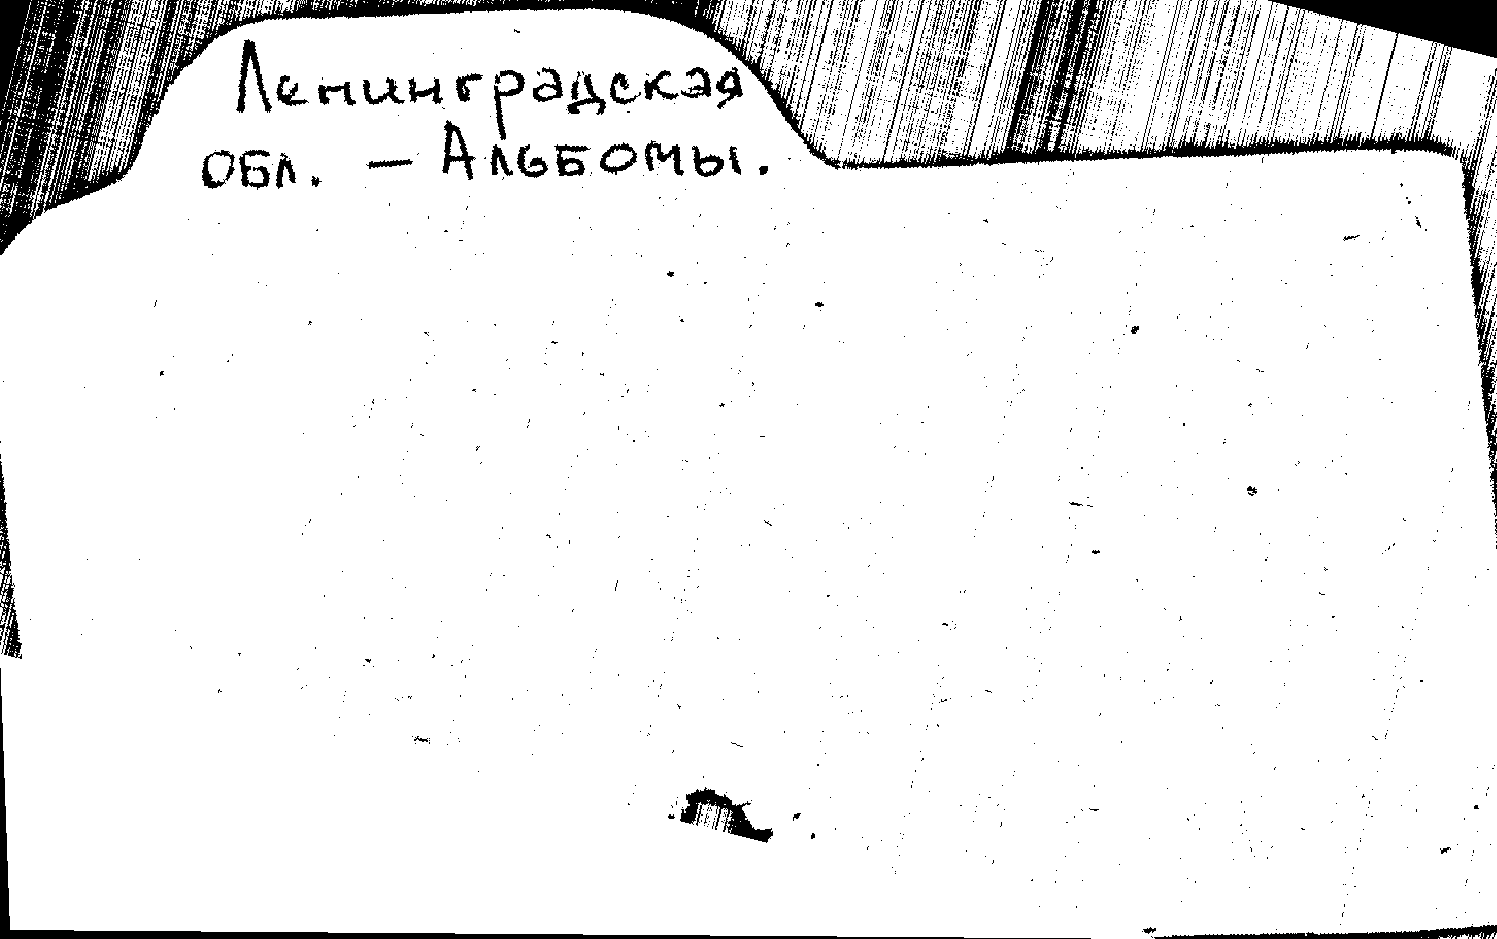 Ленинградская
обл. — Альбомы.